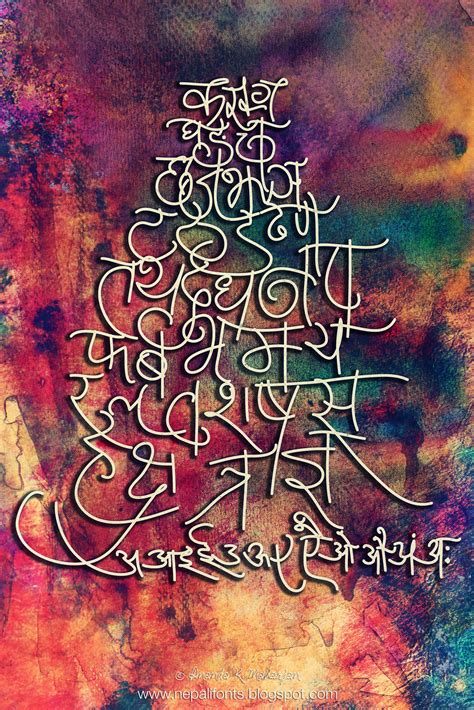 क ख ग
घ ङ च
छ ज झ ञ
ट ठ ड ढ ण
त थ द ध न प
फ ब भ म य
र ल व श ष स
ह क्ष त्र ज्ञ
अ आ इ ई उ ऊ ए ऐ ओ औ अं अः
© Ananda K Maharjan
www.nepalifonts.blogspot.com